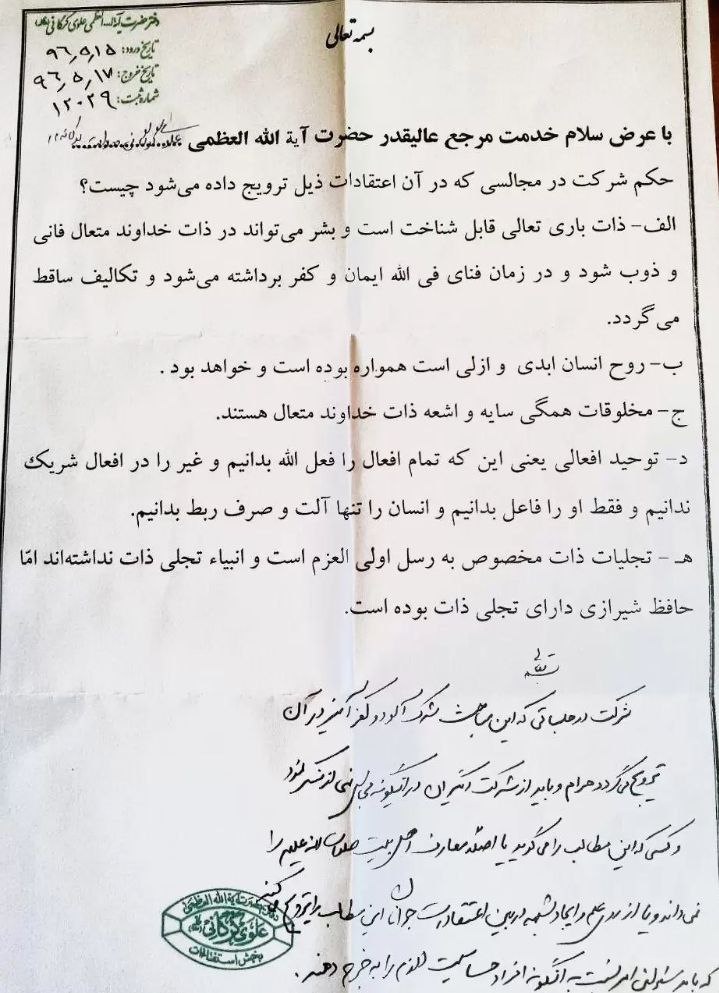 بسمه تعالی
دفتر حضرت آیة الله العظمی علوی گرگانی
تاریخ ورود: ۹۶,۵,۱۵
تاریخ خروج: ۹۶,۵,۱۷
شماره ثبت: ۱۲۰۲۹
با عرض سلام خدمت مرجع عالیقدر حضرت آیة الله العظمی
حکم شرکت در مجالسی که در آن اعتقادات ذیل ترویج داده می‌شود چیست؟
الف- ذات باری تعالی قابل شناخت است و بشر می‌تواند در ذات خداوند متعال فانی
و ذوب شود و در زمان فنای فی الله ایمان و کفر برداشته می‌شود و تکالیف ساقط
می گردد.
ب- روح انسان ابدی و ازلی است همواره بوده است و خواهد بود .
ج- مخلوقات همگی سایه و اشعه ذات خداوند متعال هستند.
د- توحید افعالی یعنی این که تمام افعال را فعل الله بدانیم و غیر را در افعال شریک
ندانیم و فقط او را فاعل بدانیم و انسان را تنها آلت و صرف ربط بدانیم.
هـ - تجلیات ذات مخصوص به رسل اولی العزم است و انبیاء تجلی ذات نداشته‌اند امّا
حافظ شیرازی دارای تجلی ذات بوده است.
شرکت در جلساتی که این مباحث شرک آلود و کفر آمیز در آن
ترویج می گردد حرام و باید از شرکت دیگران در اینگونه مجالس نهی از منکر نمود
و کسی که این مطالب را می گوید یا اصلاً معارف اهل بیت صلوات الله علیهم را
نمی داند و یا از روی علم و ایجاد شبهه در بین اعتقادات جوانان این مطالب را ترویج می کند
که باید مسئولین امر نسبت به اینگونه افراد حساسیت لازم را به خرج دهند .
دفتر حضرت آیة الله العظمی
علوی گرگانی
بخش استفتائات